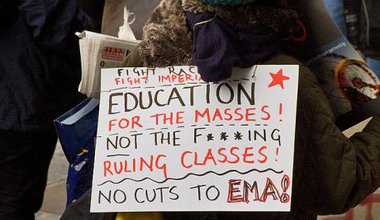 FIGHT RAC
FIGHT IMPERIA
EDUCATION
FOR THE MASSES!
NOT THE F***ING
RULING CLASSES!
NO CUTS TO EMA!